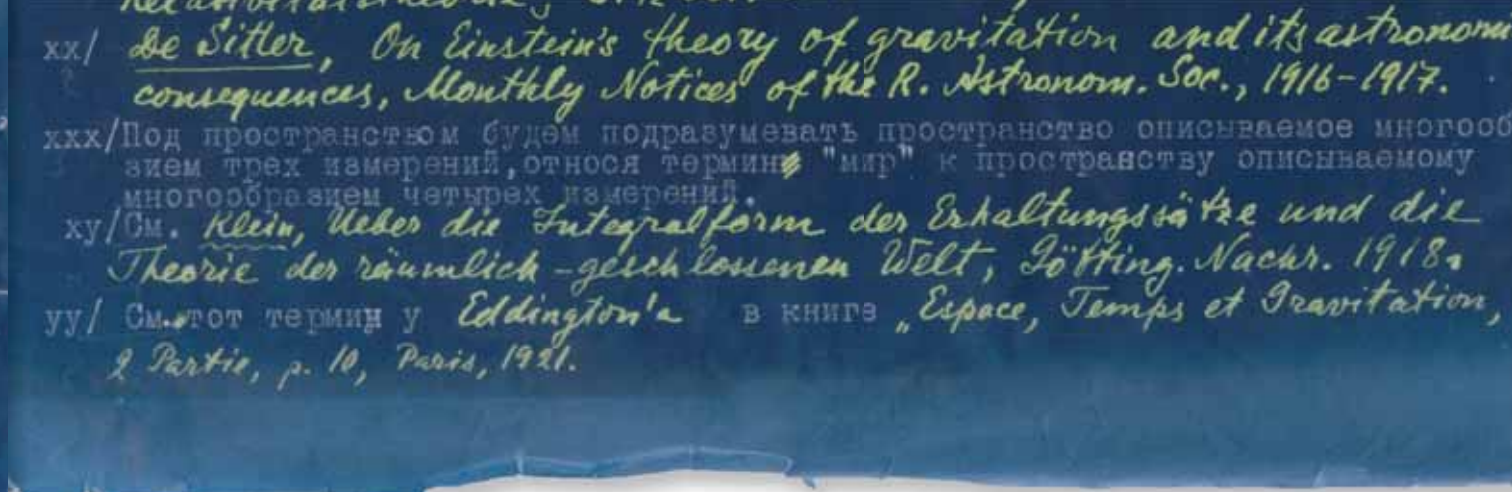 xx/ De Sitter, On Einstein's theory of gravitation and its astronom
consequences, Monthly Notices of the R. Astronom. Soc., 1916-1917.
xxx/Под пространством будем подразумевать пространство описываемое многооб
зием трех измерений, относя термин "мир" к пространству описываемому
многообразием четырех измерений.
xy/См. Klein, Ueber die Integralform der Erhaltungssätze und die
Theorie der räumlich-geschlossenen Welt, Götting. Nachr. 1918.
yy/ См. этот термин у Eddington'a в книге „Espace, Temps et Gravitation,
2 Partie, p. 10, Paris, 1921.